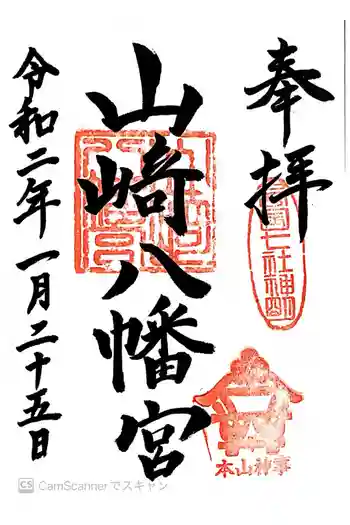 奉拝
山崎八幡宮
令和二年一月二十五日
本山神事
CS CamScannerでスキャン